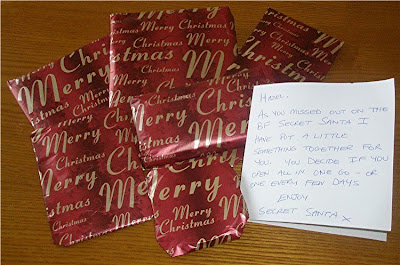 Christmas
Merry
Christmas
Merry
Christmas
Merry
Christmas
Merry
Christmas
Merry
Christmas
Merry
Christmas
Merry
Christmas
Merry
Christmas
HAZEL.
AS YOU MISSED OUT ON THE
BF SECRET SANTA I
HAVE PUT A LITTLE
SOMETHING TOGETHER FOR
YOU. YOU DECIDE IF YOU
OPEN ALL IN ONE GO - OR
ONE EVERY FEW DAYS
ENJOY
SECRET SANTA X